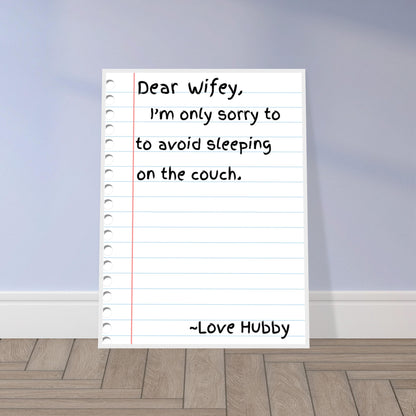 Dear Wifey,
I'm only sorry to
to avoid sleeping
on the couch.
~Love Hubby